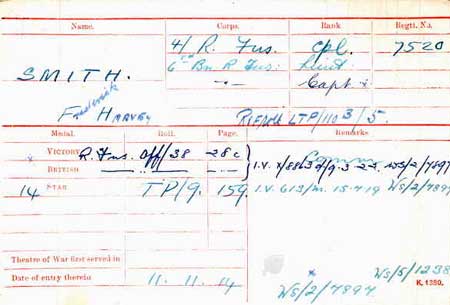 Name. Corps. Rank Regtl. No.
4/ R. Fus. Cpl. 7520
SMITH. 6th Bn R Fus: Lieut
—"— Capt x
Frederick
F HARVEY
LTP/110 3/5.
Medal. Roll. Page. Remarks
x VICTORY R. Fus. Off/38 28c
BRITISH —"— —"— —"— I.V. 9.3.22. NS/2/7897
14 STAR TP/9. 159. I.V. 613/M. 15.4.19 WS/2/7897
Theatre of War first served in
WS/5/1238
Date of entry therein 11.11.14 x
WS/2/7897 K. 1380.